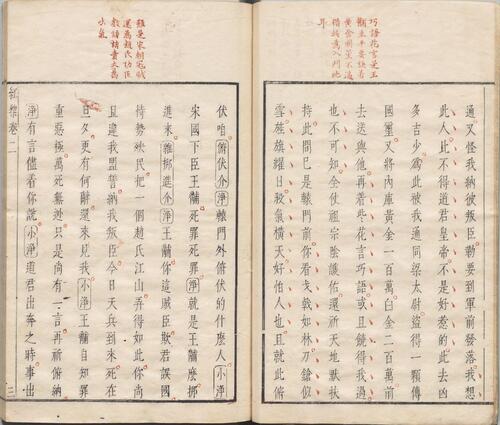 巧語花言是王
黼生平要訣看
借牠為入門地
耳
通又怪我納彼叛臣勒要到軍前發落我想
此人比不得道君皇帝不是好惹的此去凶
多吉少為此被我通同梁太尉盜得一顆傳
國璽又將內庫黃金一百萬白金二百萬前
去送與他再着些花言巧語或且饒得我過
也不可知全仗祖宗陰隲佑還祈天地默扶
持此間已是轅門前你看戈戟如林刀鎗似
雪旌旗耀日殺氣橫天好怕人也且就此俯
雖是宋朝冠賊
還為趙氏功臣
數語詰責大為
出氣
伏咱俯伏介淨轅門外俯伏的什麼人小淨
宋國下臣王黼死罪死罪淨就是王黼麼揶
進來雜揶進介淨王黼你這賊臣欺君誤國
恃勢殃民把一個趙氏江山弄得如此你尚
且違我盟誓納我叛臣今日天兵到來死在
旦夕更有何辭還來見我小淨王黼自知罪
重惡極萬死難逃只是尚有一言再祈俯納
淨有言儘看你說小淨道君出奔之時事出
紅梨卷二
三